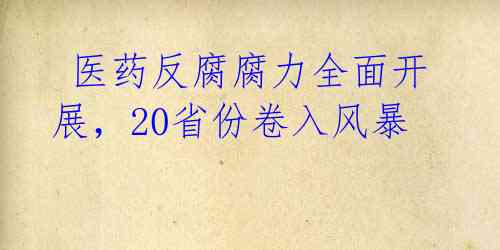 医药反腐腐力全面开
展，20省份卷入风暴